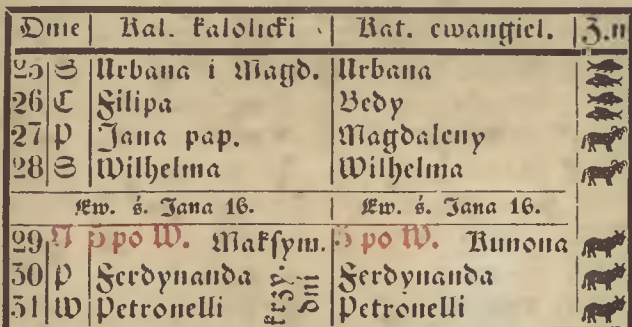 Dnie Kal. katolicki Kal. ewangiel. Z.n
25 S Urbana i Magd. Urbana
26 C Filipa Bedy
27 P Jana pap. Magdaleny
28 S Wilhelma Wilhelma
Ew. ś. Jana 16. Ew. ś. Jana 16.
29 N 5 po W. Maksym. 5 po W. Kunona
30 P Ferdynanda Ferdynanda
31 W Petronelli Petronelli
krzy.
dni